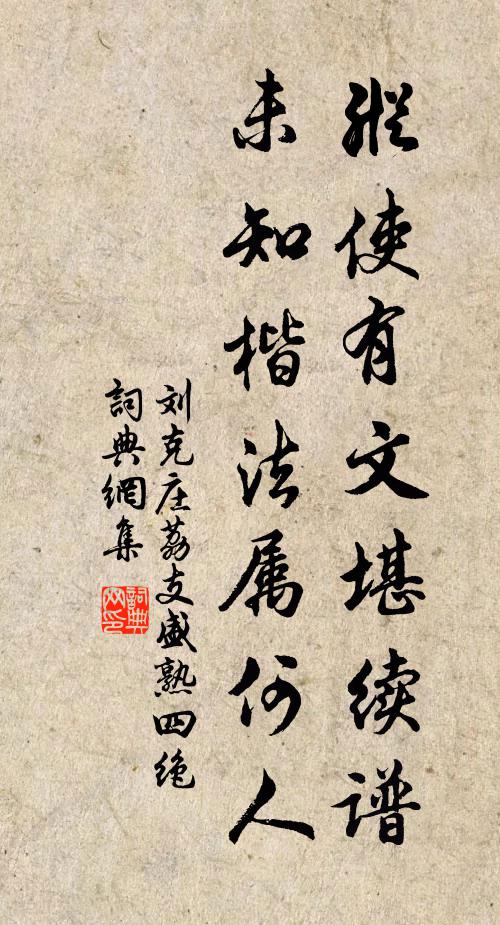 縱使有文堪续谱
未知楷法属何人
刘克庄荔支盛熟四绝
詞典網集
詞典网印